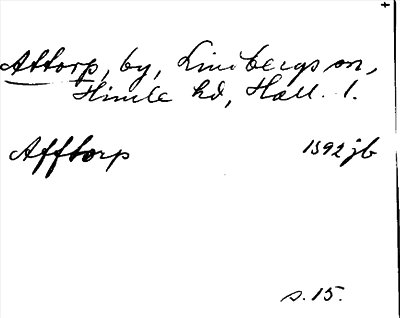 Attorp, by, Lindbergs sn,
Himle hd, Hall. l.
Afftorp 1592 jb
s. 15.